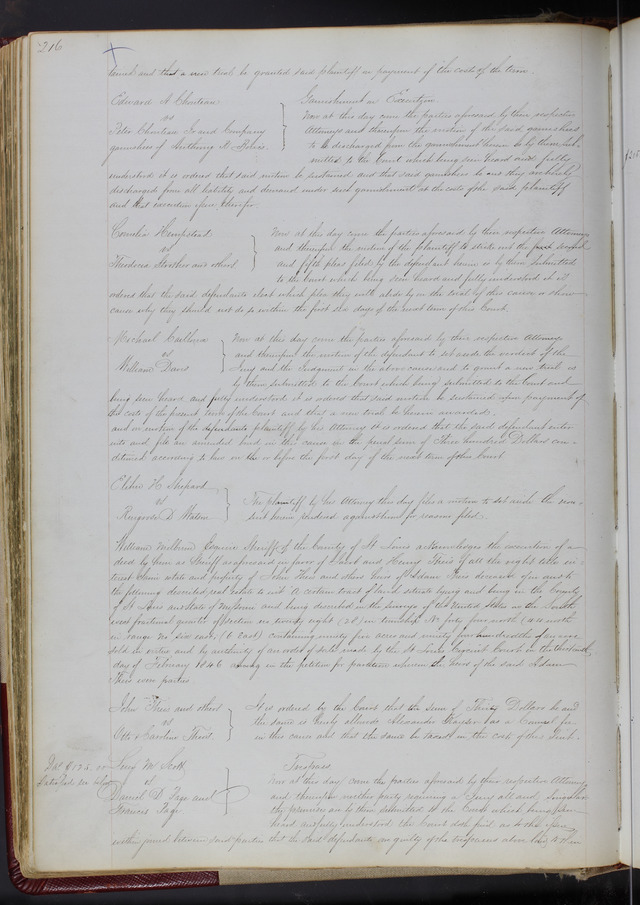 216
and that a new trial be granted said plaintiff on payment of the costs of the term.
Edward A Chouteau
vs
Peter Chouteau Jr and Company
garnishees of
Garnishment on Execution
Now at this day come the parties aforesaid by their respective
Attorneys and thereupon the motion of the said garnishees
to be discharged from the garnishment herein is by them sub-
mitted to the Court which being seen heard and fully
understood it is ordered that said motion be sustained and that said garnishees be and they are hereby
discharged from all liability and demand under said garnishment at the costs of the said plaintiff
and that execution issue therefor.
Cornelia Hempstead
vs
Theodosia Strother and others
Now at this day come the parties aforesaid by their respective Attorneys
and thereupon the motion of the plaintiff to strike out the second
and fifth pleas filed by the defendant herein is by them submitted
to the Court which being seen heard and fully understood it is
ordered that the said defendants elect which plea they will abide by in the trial of this cause or show
cause why they should not do so within the first six days of the next term of this Court.
Michael
vs
William Davis
Now at this day come the parties aforesaid by their respective Attorneys
and thereupon the motion of the defendant to set aside the verdict of the
Jury and the Judgment in the above cause and to grant a new trial is
by them submitted to the Court which being submitted to the Court and
being seen heard and fully understood it is ordered that said motion be sustained upon payment of
the costs of the present term of the Court and that a new trial be herein awarded.
and on motion of the plaintiff by his Attorney it is ordered that the said defendant enter
into and file an amended bond in this cause in the penal sum of Three hundred Dollars con-
ditioned according to law on or before the first day of the next term of this Court
Elihu H Shepard
vs
D
The plaintiff by his Attorney this day files a motion to set aside the non-
suit herein rendered against him for reasons filed.
William Milburn Esquire Sheriff of the County of St Louis acknowledges the execution of a
deed by him as Sheriff as aforesaid in favor of and Henry Theis of all the right title in-
terest claim estate and property of John Theis and others heirs of Adam Theis deceased of in and to
the following described real estate to wit A certain tract of land situate lying and being in the County
of St Louis and State of Missouri and being described in the surveys of the United States as the South
west fractional quarter of Section no twenty eight (28) in township No forty four north (44 north
in range No six east (6 east) containing ninety five acres and ninety hundredths of an acre
sold in entire and by authority of an order of sale made by the St Louis Circuit Court on the
day of February 1846 in the petition for partition wherein the heirs of the said Adam
Theis were parties.
John Theis and others
vs
Caroline Theis
It is ordered by the Court that the sum of Thirty Dollars be and
the same is hereby allowed Alexander as a Counsel fee
in this cause and that the same be taxed in the cost of this suit.
M Scott
vs
Daniel D Page and
Francis Page
Trespass
Now at this day come the parties aforesaid by their respective Attorneys
and thereupon neither party requiring a Jury all and singular
the premises are by them submitted to the Court which being seen
heard and fully understood the Court doth find as to the issue
within joined between said parties that the said defendants are guilty of the trespasses above laid